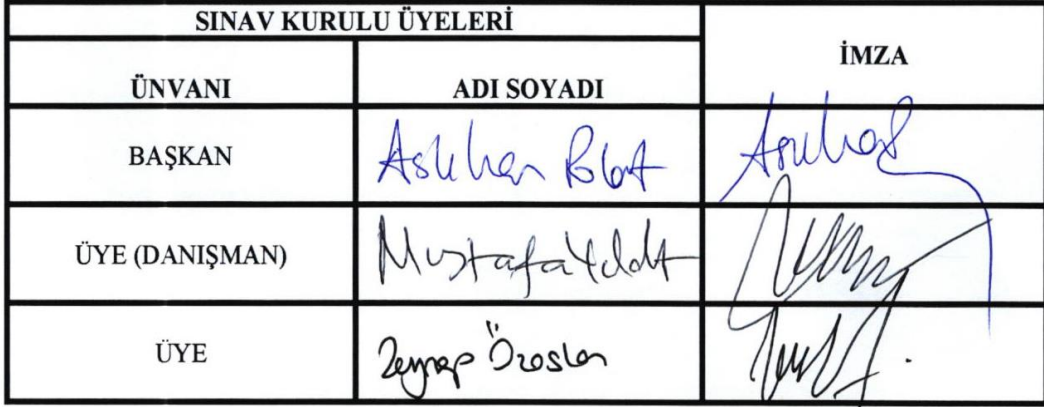 SINAV KURULU ÜYELERİ
İMZA
ÜNVANI ADI SOYADI
BAŞKAN Aslıhan Polat
ÜYE (DANIŞMAN) Mustafa
ÜYE Zeynep Özaslan